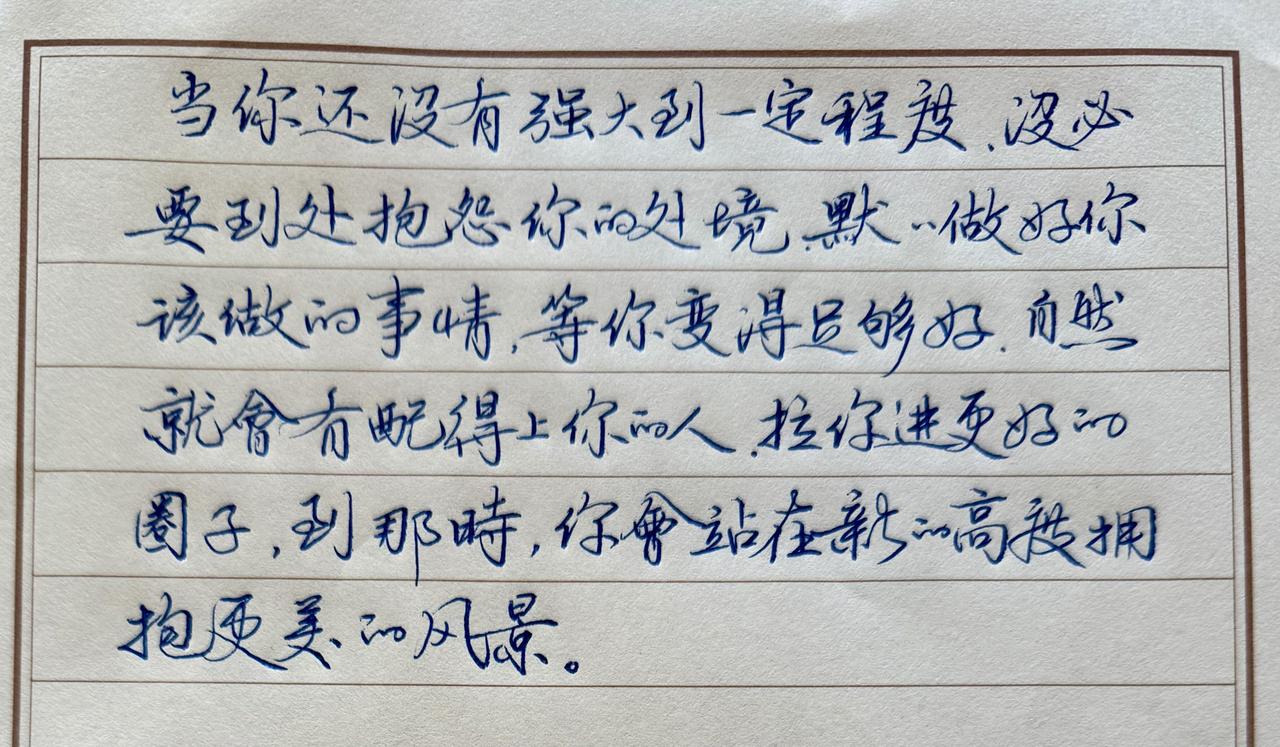 当你还没有强大到一定程度、没必
要到处抱怨你的处境、默默做好你
该做的事情,等你变得足够好、自然
就會有配得上你的人、拉你进更好的
圈子,到那時,你會站在新的高度拥
抱更美的风景。